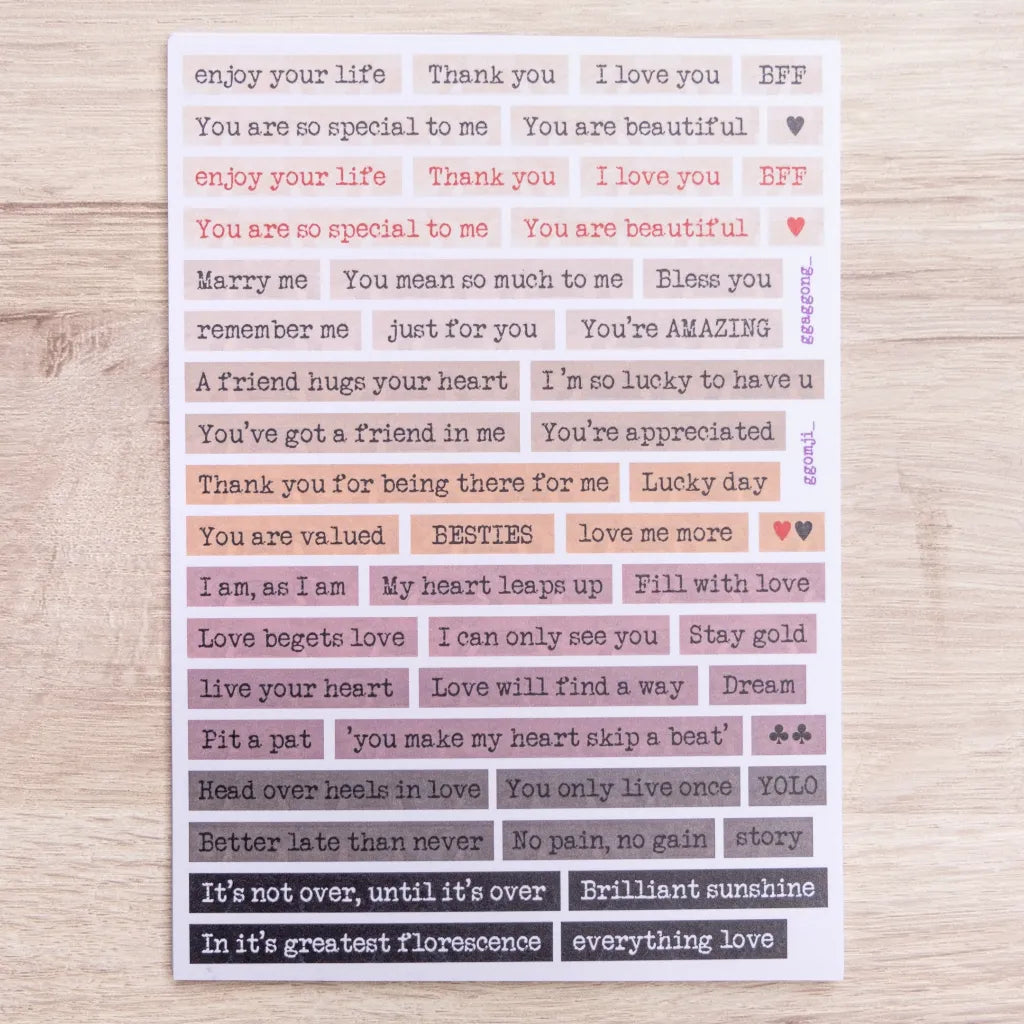 enjoy your life Thank you I love you BFF
You are so special to me You are beautiful ♥
enjoy your life Thank you I love you BFF
You are so special to me You are beautiful ♥
Marry me You mean so much to me Bless you
remember me just for you You're AMAZING
ggaggong_
A friend hugs your heart I'm so lucky to have u
You've got a friend in me You're appreciated
ggomji_
Thank you for being there for me Lucky day
You are valued BESTIES love me more ♥♥
I am, as I am My heart leaps up Fill with love
Love begets love I can only see you Stay gold
live your heart Love will find a way Dream
Pit a pat 'you make my heart skip a beat' ♣♣
Head over heels in love You only live once YOLO
Better late than never No pain, no gain story
It's not over, until it's over Brilliant sunshine
In it's greatest florescence everything love